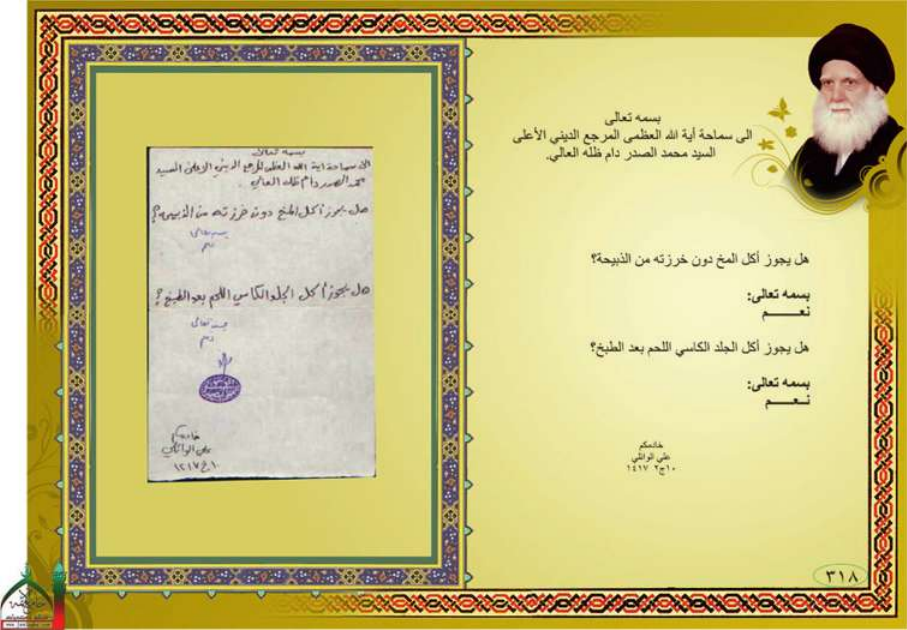 بسمه تعالى
الى سماحة آية الله العظمى المرجع الديني الأعلى
السيد محمد الصدر دام ظله العالي.
هل يجوز أكل المخ دون خرزته من الذبيحة؟
بسمه تعالى:
نعـــــم
هل يجوز أكل الجلد الكاسي اللحم بعد الطبخ؟
بسمه تعالى:
نعـــــم
خادمكم
علي الوائلي
١٠ج٢ ١٤١٧
٣١٨
بسمه تعالى
الى سماحة اية الله العظمى المرجع الديني الاعلى السيد
محمد الصدر دام ظله العالي.
هل يجوز أكل المخ دون خرزته من الذبيحة؟
بسمه تعالى
نعم
هل يجوز أكل الجلد الكاسي اللحم بعد الطبخ؟
بسمه تعالى
نعم
خادمكم
علي الوائلي